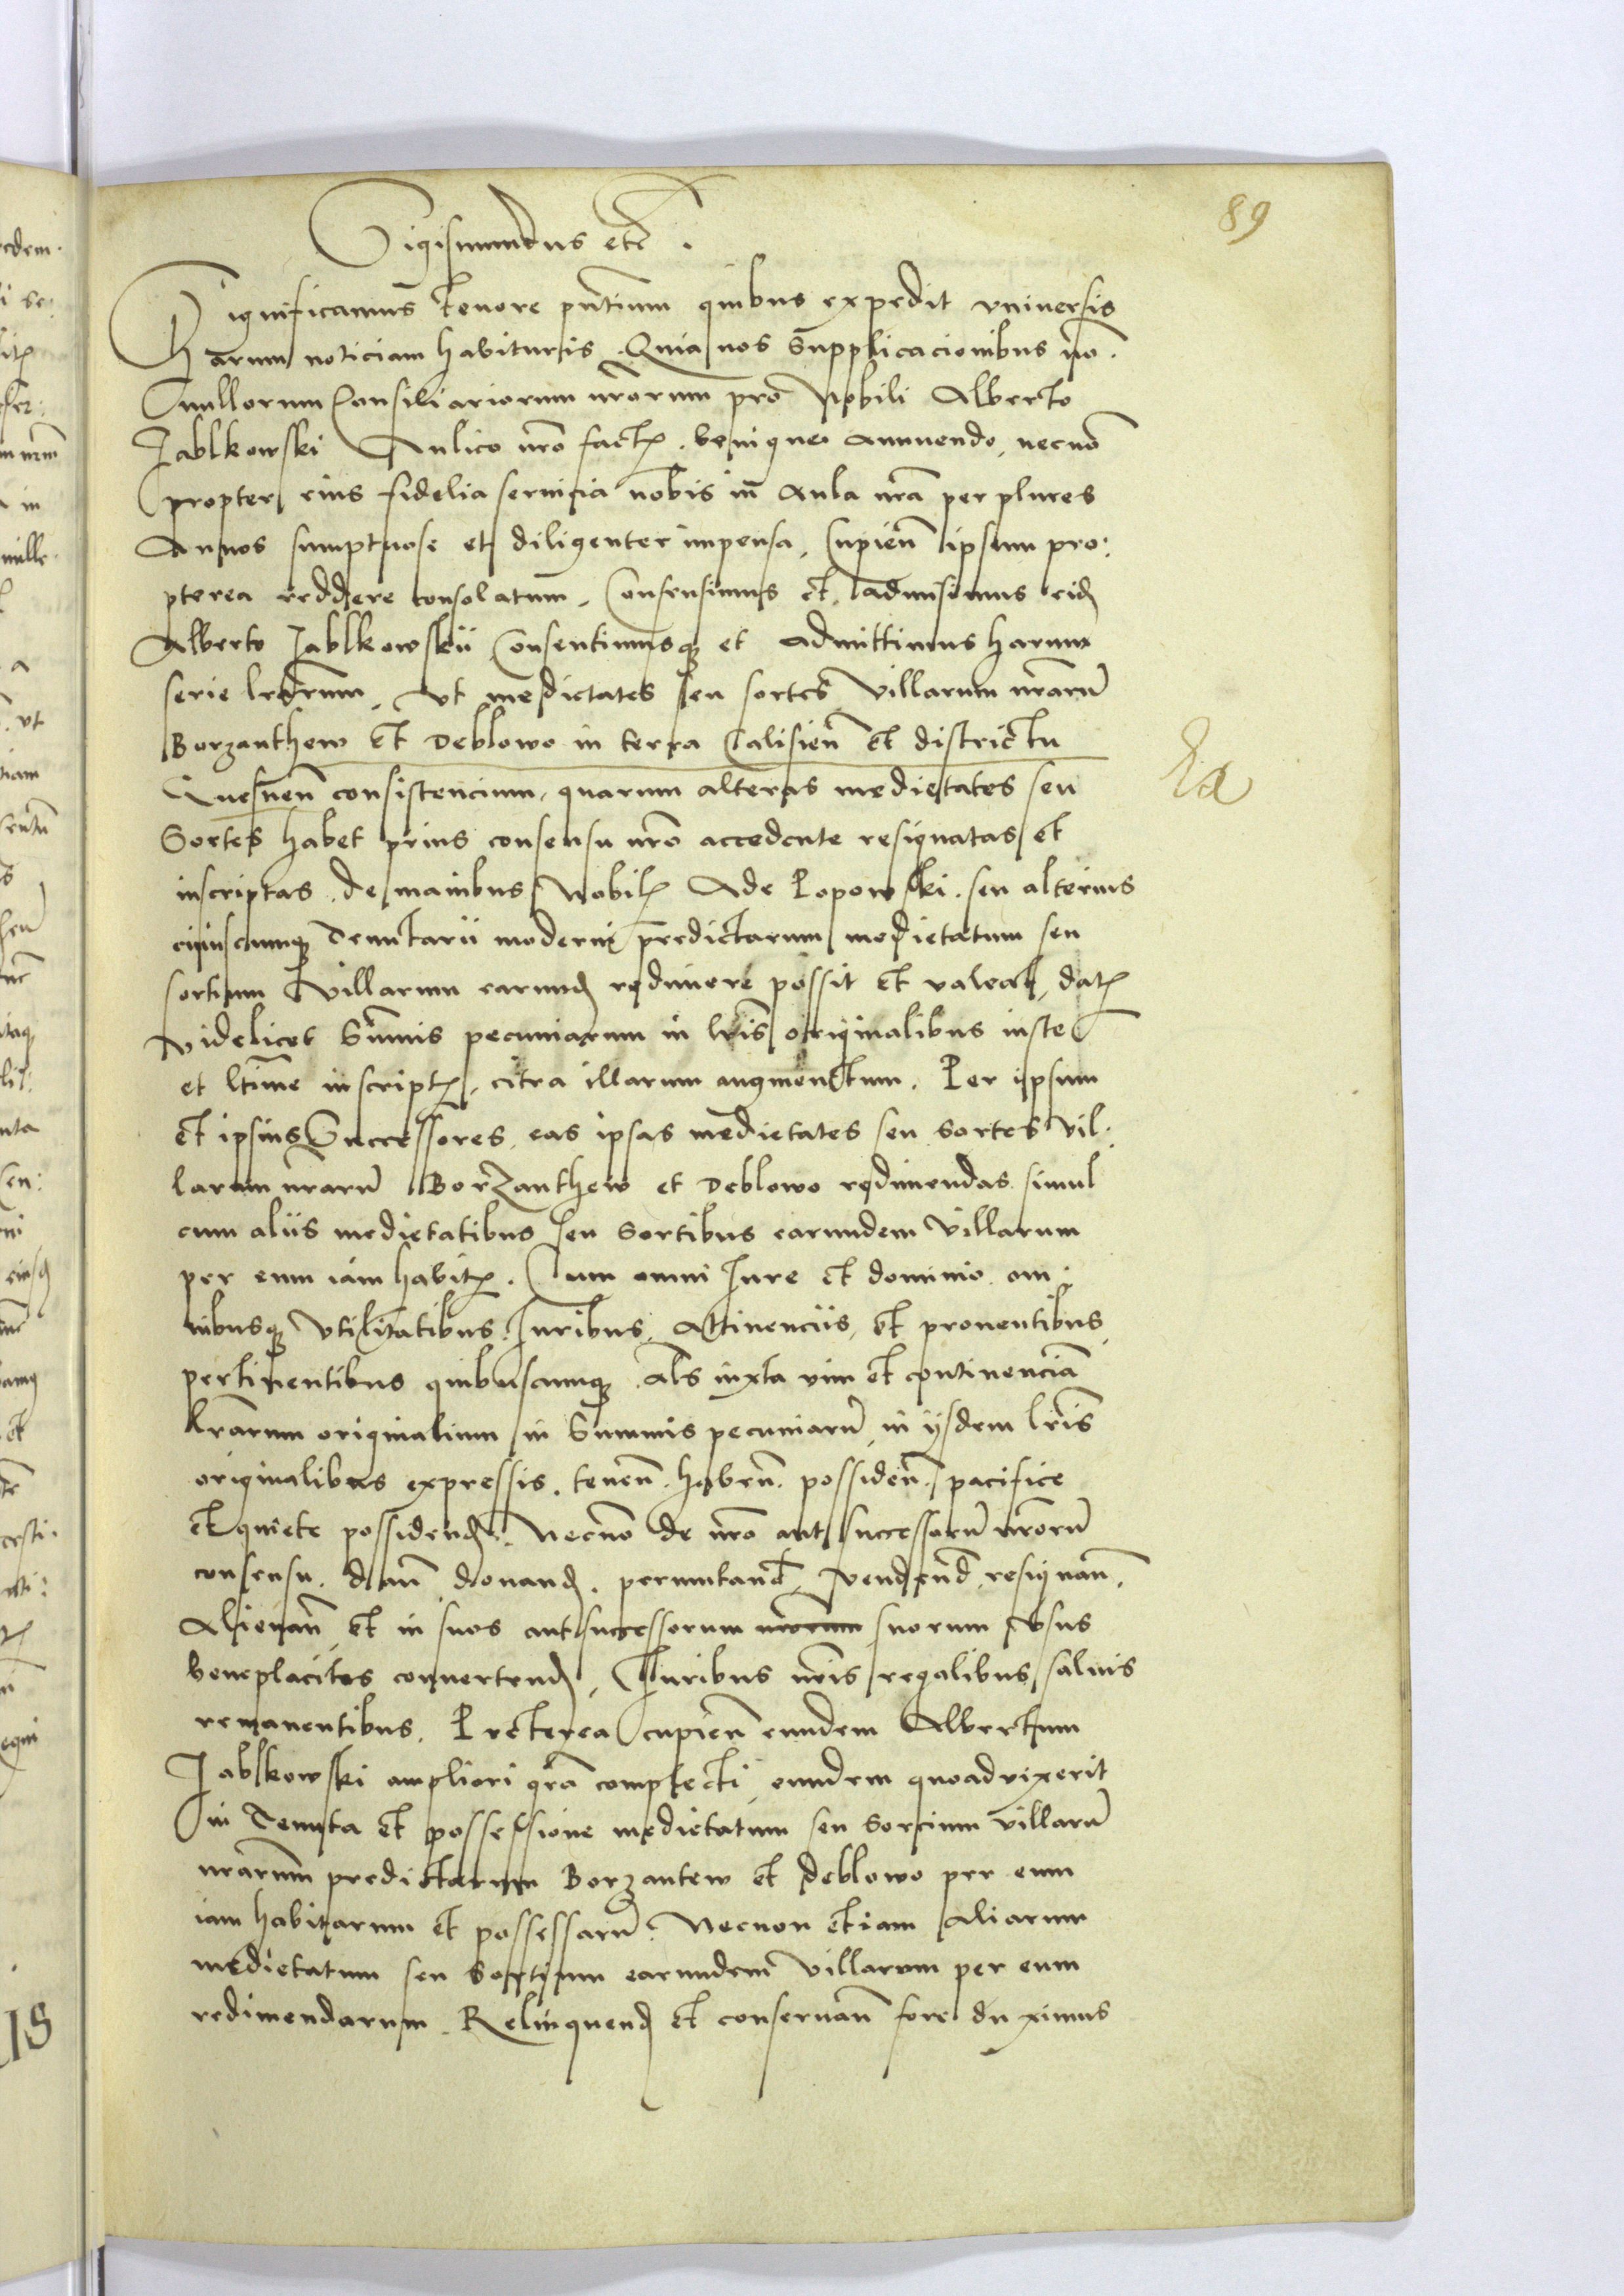 89
Sigismundus etc.
Significamus tenore pntium quibus expedit vniuersis
harum noticiam habituris. Quia nos Supplicacionibus no.
nullorum Consiliariorum nrorum pro Nobili Alberto
Jablkowski Aulico nro fact. benigne annuendo, necno
propter eius fidelia seruicia nobis in Aula nra per plures
Annos sumptuose et diligenter impensa, Cupien ipsum pro:
pterea reddere consolatum, Consensimus et admisimus eid
Alberto Jablkowskii Consentimusq et admittimus harum
serie lrarum, Vt medietates seu sortes Villarum nraru
Borzanthew Et Deblowo in terra Calisien Et districtu
Gnesnen consistencium, quarum alteras medietates seu
Sortes habet prius consensu nro accedente resignatas et
inscriptas. de manibus Nobil Ade Popowski. seu alterius
cuiuscumq Tenutarii moderni predictarum medietatum seu
sortium Villarum earund redimere possit Et valeat, dat
Videlicet Summis pecuniarum in lris originalibus iuste
et ltime inscript, citra illarum augmentum. Per ipsum
et ipsius Successores eas ipsas medietates seu sortes Vil:
larum nraru Borzanthew et Deblowo redimendas simul
cum aliis medietatibus seu Sortibus earundem Villarum
per eum iam habit. Cum omni Jure et dominio om:
nibusq vtilitatibus Juribus, Attinenciis, et prouentibus
pertinentibus quibuscumq als iuxta vim et continencia
lrarum originalium in Summis pecuniaru in ysdem lris
originalibus expressis, tenen haben possiden, pacifice
et quiete possidend. Necno de nro aut successoru nroru
consensu. dan donand. permutand, Vendend resignan,
Alienan et in suos aut successorum nrorum suorum Vsus
beneplacitos conuertend, Juribus nris regalibus saluis
remanentibus. Preterea cupien eundem Albertum
Jablkowski ampliori gra complecti, eundem quoad vixerit
in Tenuta et possessione medietatum seu Sorcium villaru
nrarum predictarum Borzantew et Deblowo per eum
iam habitarum et possessaru. Necnon etiam Aliarum
medietatum seu Sortium earundem Villarum per eum
redimendarum. Relinquend Et conseruan fore duximus